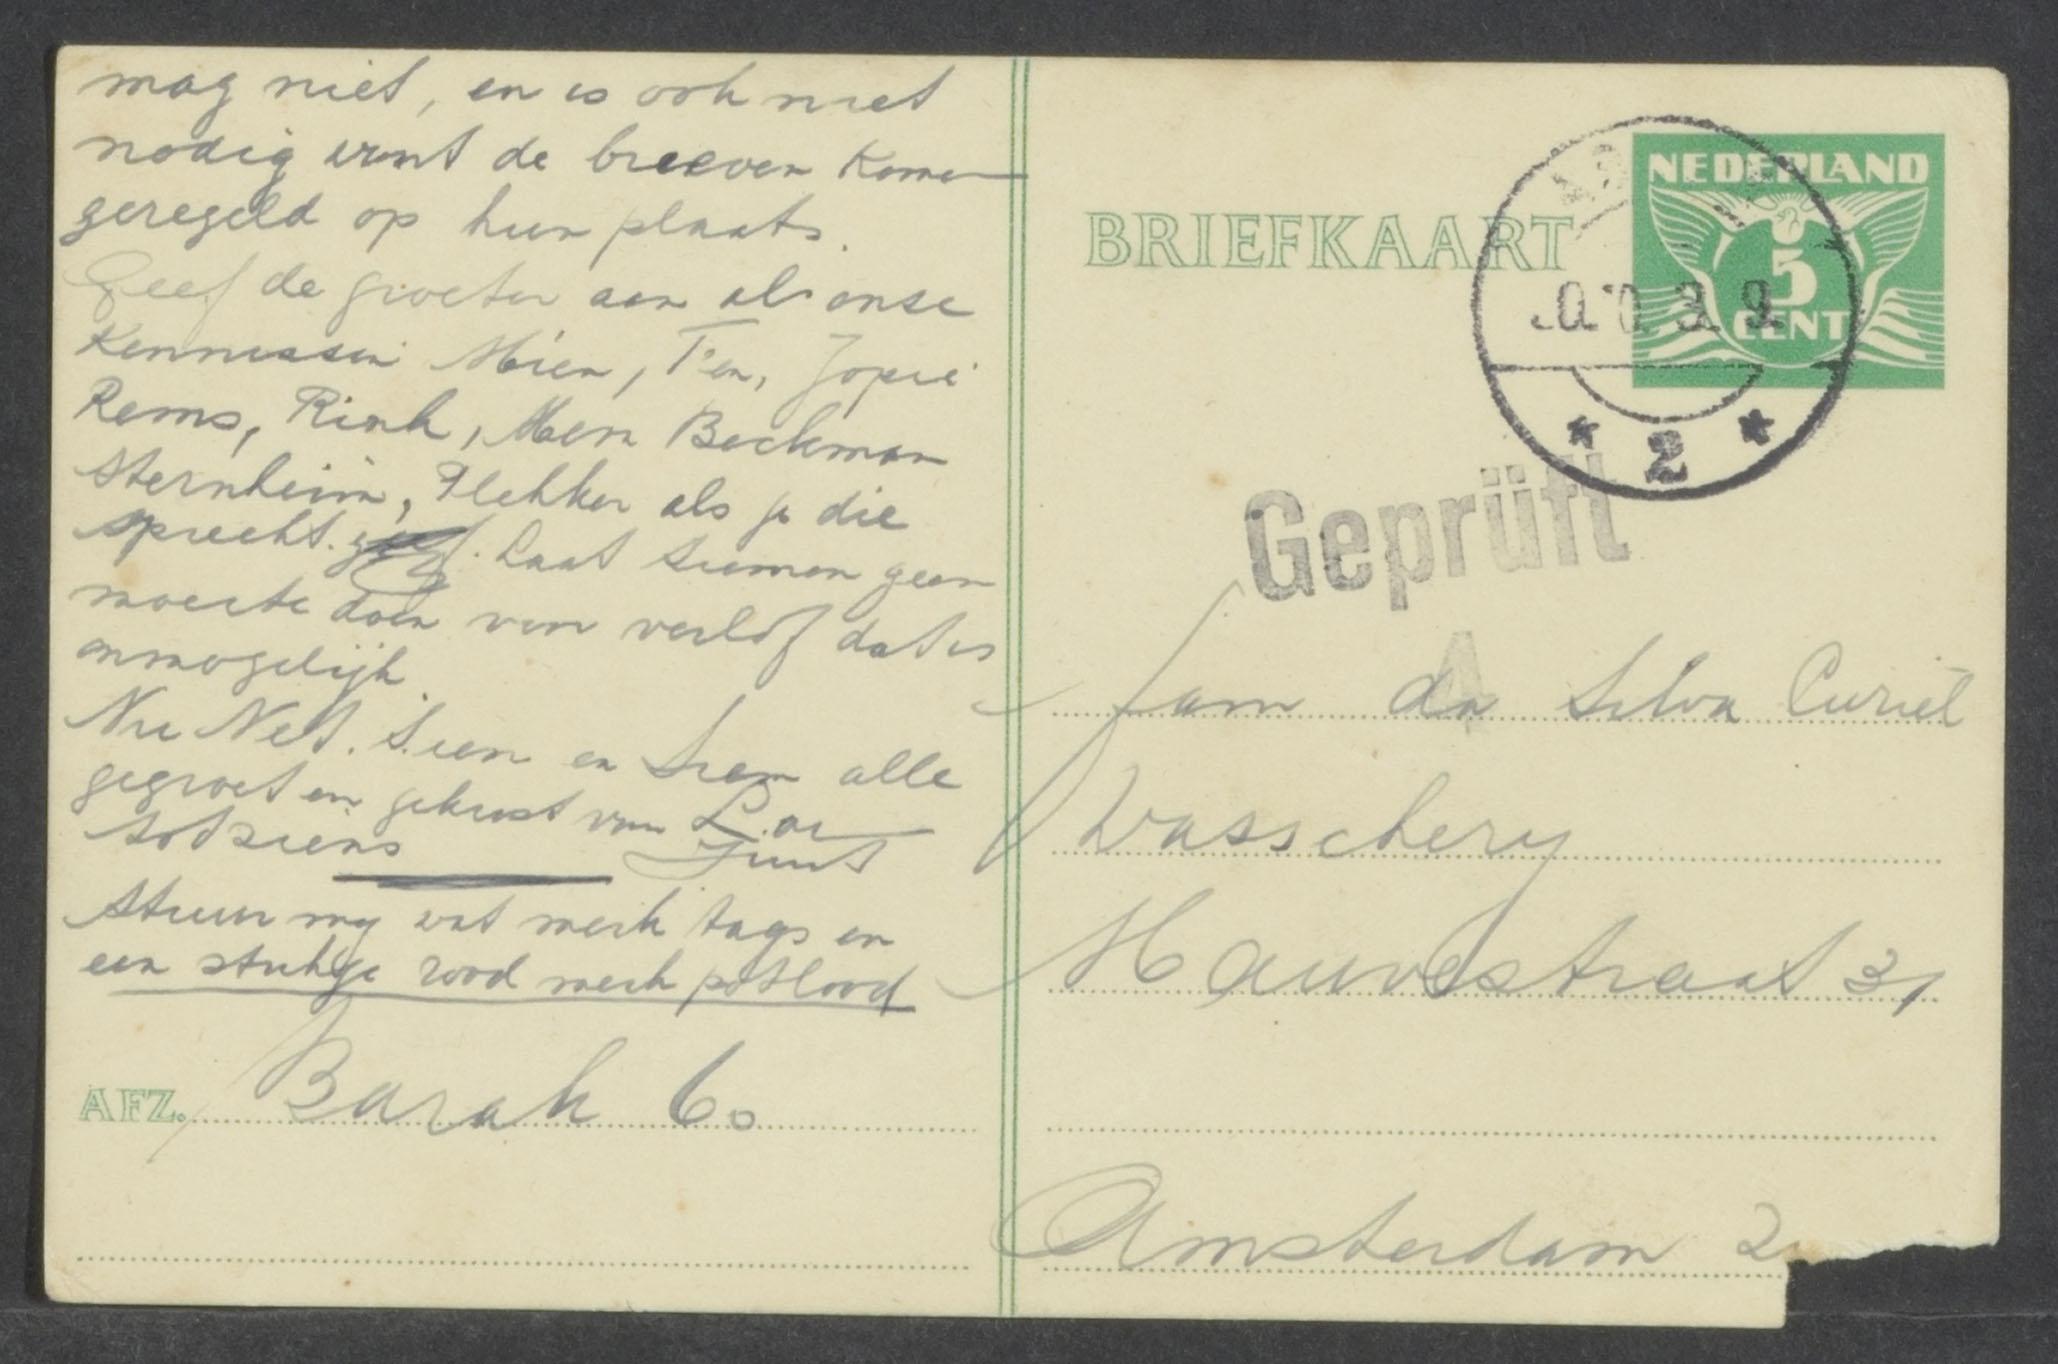 mag niet, en is ook niet
nodig want de brieven komen
geregeld op hun plaats.
Geef de groeten aan al onse
Kennissen Mien, Fen, Jopie
Rems, Rink, Mem Beekman
Sternheim, Plekker als je die
spreekt. Laat Siemon geen
moeite doen van verlof dat is
onmogelijk
Nu Net. Sien en Siem alle
gegroet en gekust van L. ar
totsiens
stuur my wat merk tags en
een stukje rood merk potlood
AFZ. Barak 60
BRIEFKAART
NEDERLAND
5
CENT
2
Geprüft
4
fam da Silva Curiel
Wasschery
Mauvestraat 31
Amsterdam Z